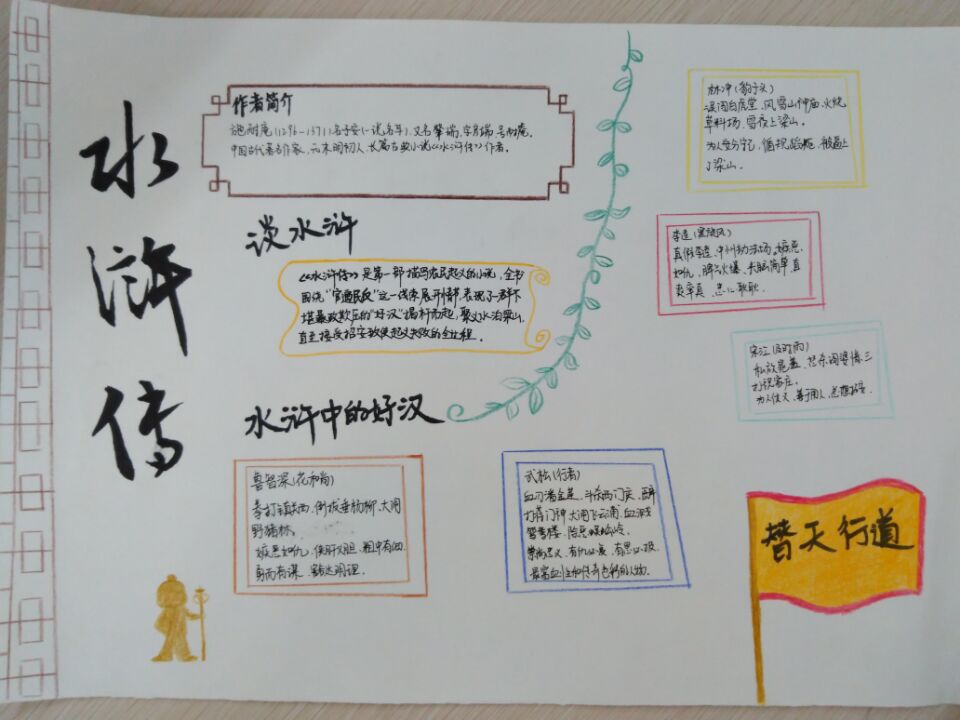 水浒传
作者简介
施耐庵(1296-1371),名子安(一说名耳),又名肇瑞,字彦端,号耐庵。
中国古代著名作家,元末明初人,长篇古典小说《水浒传》作者。
谈水浒
《水浒传》是第一部描写农民起义的小说,全书
围绕“官逼民反”这一线索展开情节,表现了一群不
堪暴政欺压的“好汉”揭竿而起,聚义水泊梁山,
直至接受招安致使起义失败的全过程。
水浒中的好汉
鲁智深(花和尚)
拳打镇关西、倒拔垂杨柳、大闹
野猪林。
嫉恶如仇、侠肝义胆、粗中有细、
勇而有谋、豁达明理。
武松(行者)
血刃潘金莲、斗杀西门庆、醉
打蒋门神、大闹飞云浦、血溅
鸳鸯楼、除恶蜈蚣岭。
崇尚忠义、有仇必复、有恩必报
最富血性和传奇色彩的人物。
林冲(豹子头)
误闯白虎堂、风雪山神庙、火烧
草料场、雪夜上梁山。
为人安分守己、循规蹈矩、被逼上
了梁山。
李逵(黑旋风)
真假李逵、江州劫法场。嫉恶
如仇、脾气火爆、头脑简单、直
爽率真、忠心耿耿。
宋江(及时雨)
私放晁盖、怒杀阎婆惜、三
打祝家庄。
为人仗义、善于用人、总想招安
替天行道